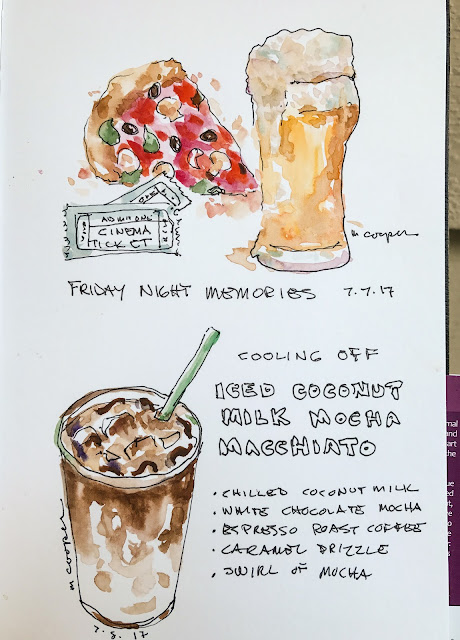 ADMIT ONE
CINEMA
TICKET
m cooper
FRIDAY NIGHT MEMORIES 7.7.17
COOLING OFF
ICED COCONUT
MILK MOCHA
MACCHIATO
• CHILLED COCONUT MILK
• WHITE CHOCOLATE MOCHA
• ESPRESSO ROAST COFFEE
• CARAMEL DRIZZLE
• SWIRL OF MOCHA
m cooper
7.8.17